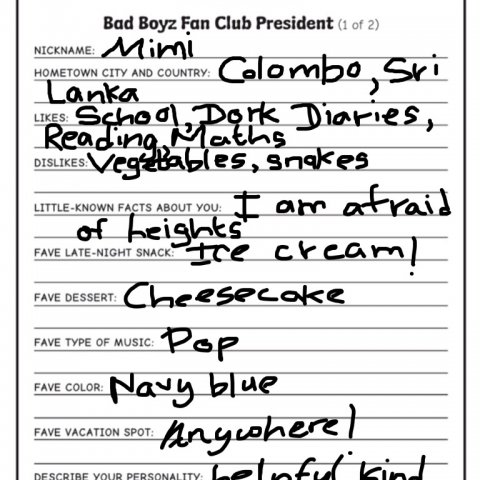 Bad Boyz Fan Club President (1 of 2)
NICKNAME: Mimi
HOMETOWN CITY AND COUNTRY: Colombo, Sri
Lanka
LIKES: School, Dork Diaries,
Reading, Maths
DISLIKES: Vegetables, snakes
LITTLE-KNOWN FACTS ABOUT YOU: I am afraid
of heights
FAVE LATE-NIGHT SNACK: Ice cream!
FAVE DESSERT: Cheesecake
FAVE TYPE OF MUSIC: Pop
FAVE COLOR: Navy blue
FAVE VACATION SPOT: Anywhere!
DESCRIBE YOUR PERSONALITY: helpful, kind